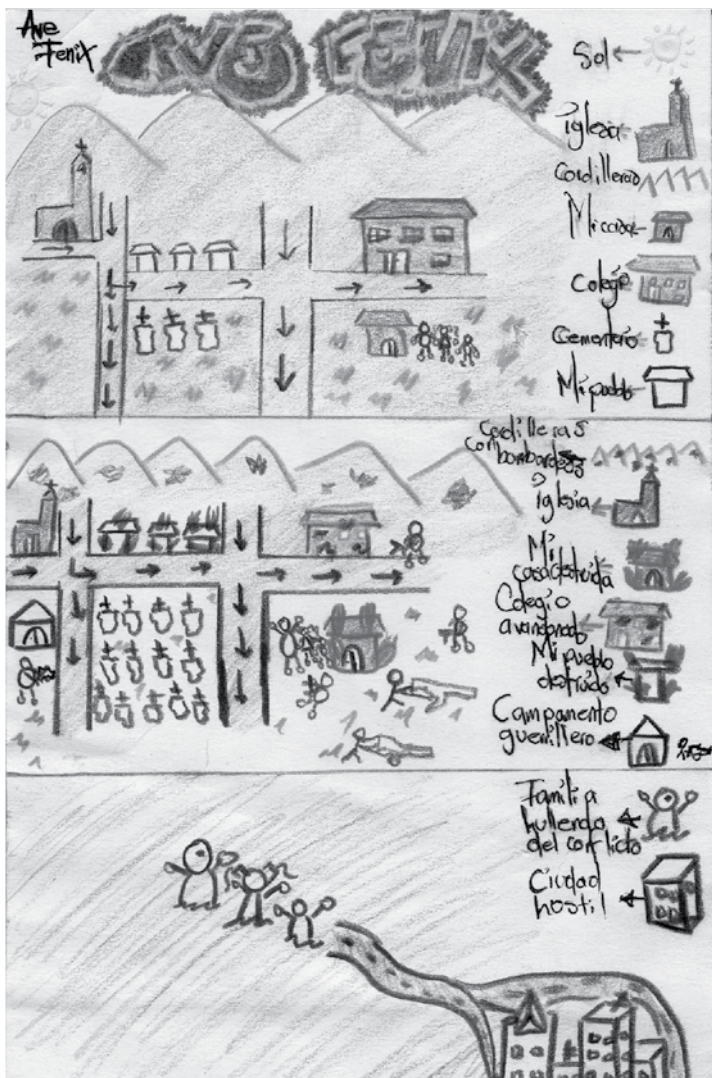 Ave
Fenix
AVE FENIX
Sol
iglesia
Cordilleras
Mi casa
Colegio
Cementerio
Mi pueblo
Cordilleras
con bombardeos
iglesia
Mi
casa destruida
Colegio
avandonado
Mi pueblo
destruido
Campamento
guerrillero
Familia
hullendo
del conflicto
Ciudad
hostil